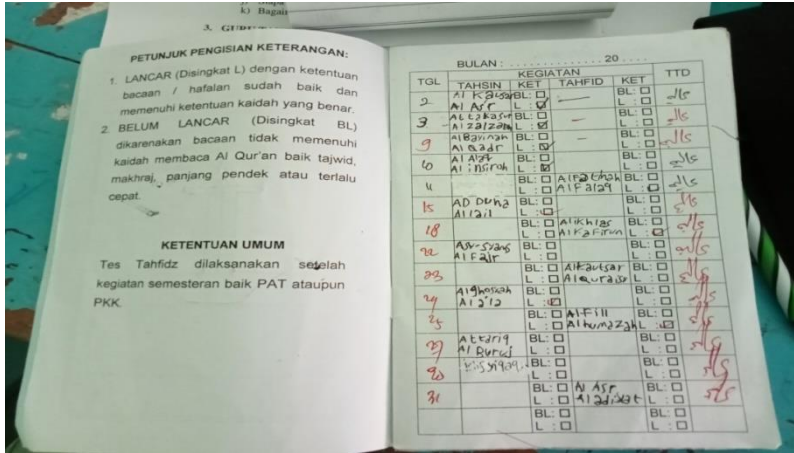 k) Bagai
3. GURU
PETUNJUK PENGISIAN KETERANGAN:
1. LANCAR (Disingkat L) dengan ketentuan
bacaan / hafalan sudah baik dan
memenuhi ketentuan kaidah yang benar.
2. BELUM LANCAR (Disingkat BL)
dikarenakan bacaan tidak memenuhi
kaidah membaca Al Qur'an baik tajwid,
makhraj, panjang pendek atau terlalu
cepat.
KETENTUAN UMUM
Tes Tahfidz dilaksanakan setelah
kegiatan semesteran baik PAT ataupun
PKK.
BULAN : . . . . . . . . . . . . . . . 20 . . . .
TGL KEGIATAN TTD
TAHSIN KET TAHFID KET
2 Al Kausar BL: BL:
Al Asr L : L :
3 Attakasur BL: BL:
Alzalzalah L : L :
9 Al Bayinah BL: BL:
Al Qadr L : L :
10 Al Alaq BL: BL:
Al insiroh L : L :
11 BL: Alfatihah BL:
L : Al Falaq L :
15 AD Duha BL: BL:
Allail L : L :
18 BL: Alikhlas BL:
L : Al Kafirun L :
22 Asy-Syams BL: BL:
Al Fajr L : L :
23 BL: Alkautsar BL:
L : Alquraisy L :
24 Alghosiah BL: BL:
Al a'la L : L :
25 BL: Al-Fill BL:
L : Alhumazah L :
27 Attariq BL: BL:
Al Buruj L : L :
30 BL: BL:
L : L :
31 BL: Al Asr BL:
L : Al adiyat L :
BL: BL:
L : L :